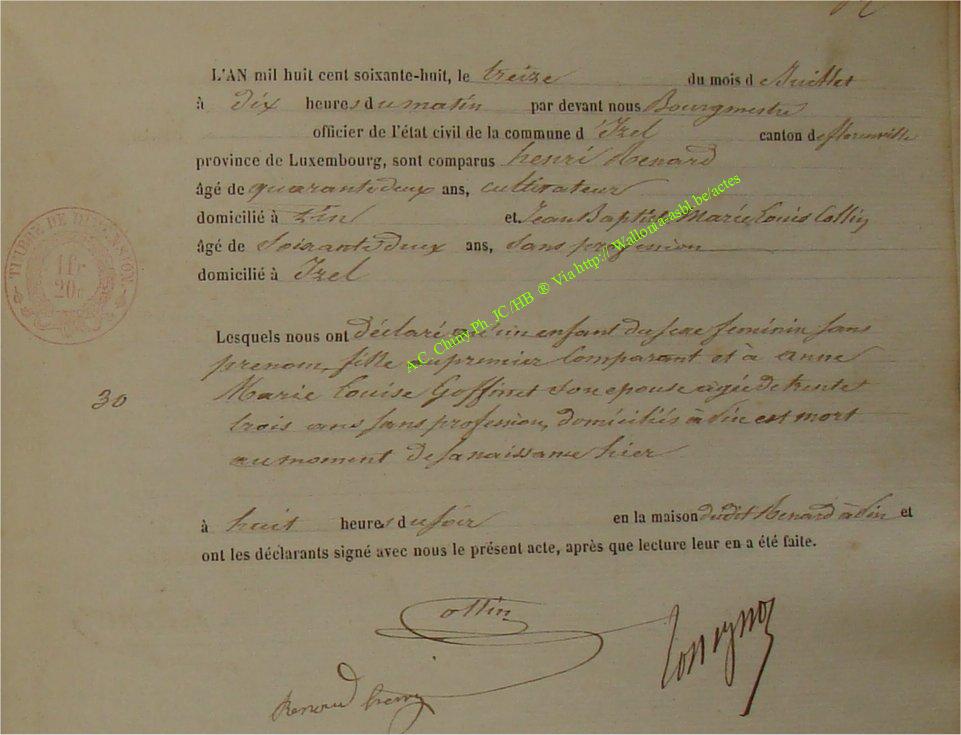 L'AN mil huit cent soixante-huit, le treize du mois de Juillet
à dix heures du matin par devant nous Bourgmestre
officier de l'état civil de la commune d'Izel canton de florenville
province de Luxembourg, sont comparus henri Renard
âgé de quarante deux ans, cultivateur
domicilié à et Jean Baptiste Marie Louis Collin
âgé de Soixante deux ans, Sans profession
domicilié à Izel
TIMBRE DE DIMENSION
1fr
20c
A.C. Chiny Ph JC /HB ® Via http://Wallonia-asbl.be/actes
Lesquels nous ont déclaré qu'un enfant du sexe feminin sans
prenom, fille du premier Comparant et à anne
Marie Louise Goffinet Son epouse agée de trente
30
trois ans sans profession, domiciliés à est mort
au moment de sa naissance hier
à huit heures du soir en la maison dudit Renard à et
ont les déclarants signé avec nous le présent acte, après que lecture leur en a été faite.
Collin
Renard henry